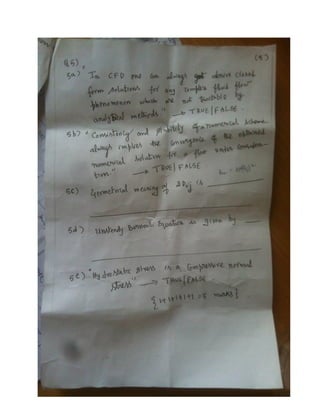 Q5),
(4)
5a) In CFD one can always get above closed
form solutions for any complex fluid flow"
phenomenon which are not tractable by
analytical methods. → TRUE/FALSE.
5b) "Consistency and stability of a numerical scheme
always implies the convergence of the obtained
numerical solution for a flow under considera-
tion." → TRUE/FALSE
5c) Geometrical meaning of Dij is
5d) Unsteady Bernoulli Equation is given by
5e) "Hydrostatic stress is a compressive normal
stress" → TRUE/FALSE
{1+1+1+1+1=5 marks}